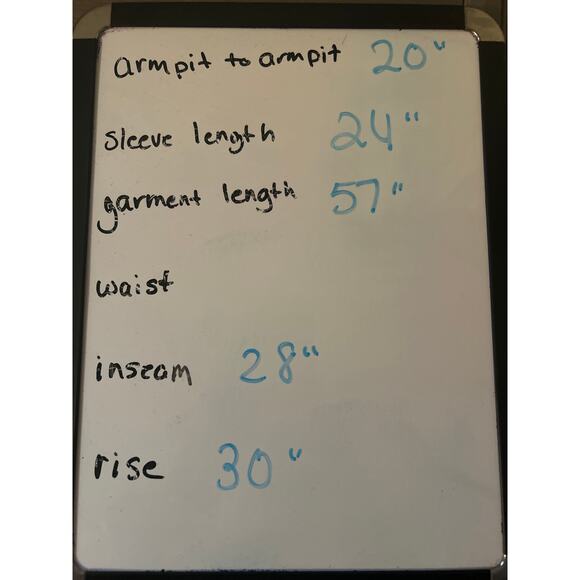 armpit to armpit 20"
sleeve length 24"
garment length 57"
waist
inseam 28"
rise 30"